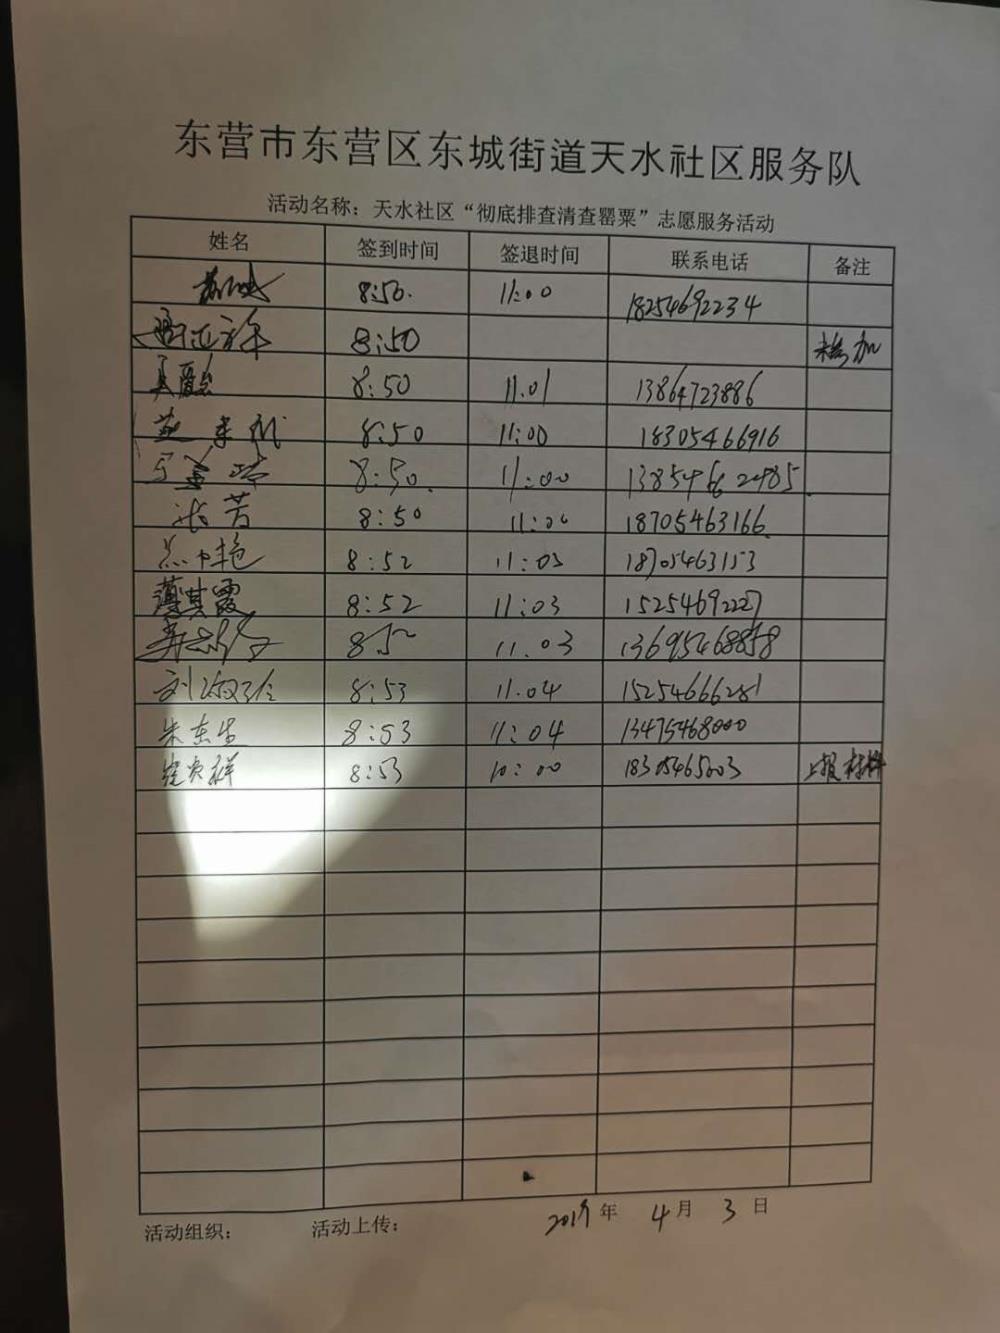 东营市东营区东城街道天水社区服务队
活动名称：天水社区“彻底排查清查罂粟”志愿服务活动
姓名 签到时间 签退时间 联系电话 备注
8:50. 11:00 18254692234
8:50
8:50 11.01 13864723886
8:50 11:00 18305466916
8:50. 11:00
张芳 8:50 11:00 18705463166
8:52 11:03 18705463153
薄其霞 8:52 11:03 15254692227
11.03 13695468858
刘 8:53 11.04 15254666281
朱东生 8:53 11:04 13475468000
8:53 10:00 18305465003 上报材料
活动组织： 活动上传： 2019年 4月 3日